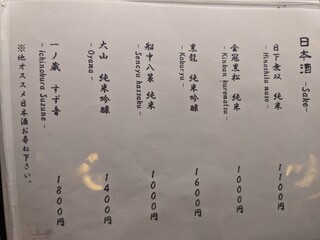 日本酒 -Sake-
日下無双 純米 1100円
- Hinoshita muso
金冠黒松 純米 1000円
- Kinkan kuromatsu
黒龍 純米吟醸 1600円
- Kokuryu
船中八策 純米 1000円
- Sencyu hassaku
大山 純米吟醸 1400円
- Oyama
一ノ蔵 すず音 1800円
- Ichinokura Suzune
※他オススメ日本酒お尋ね下さい。